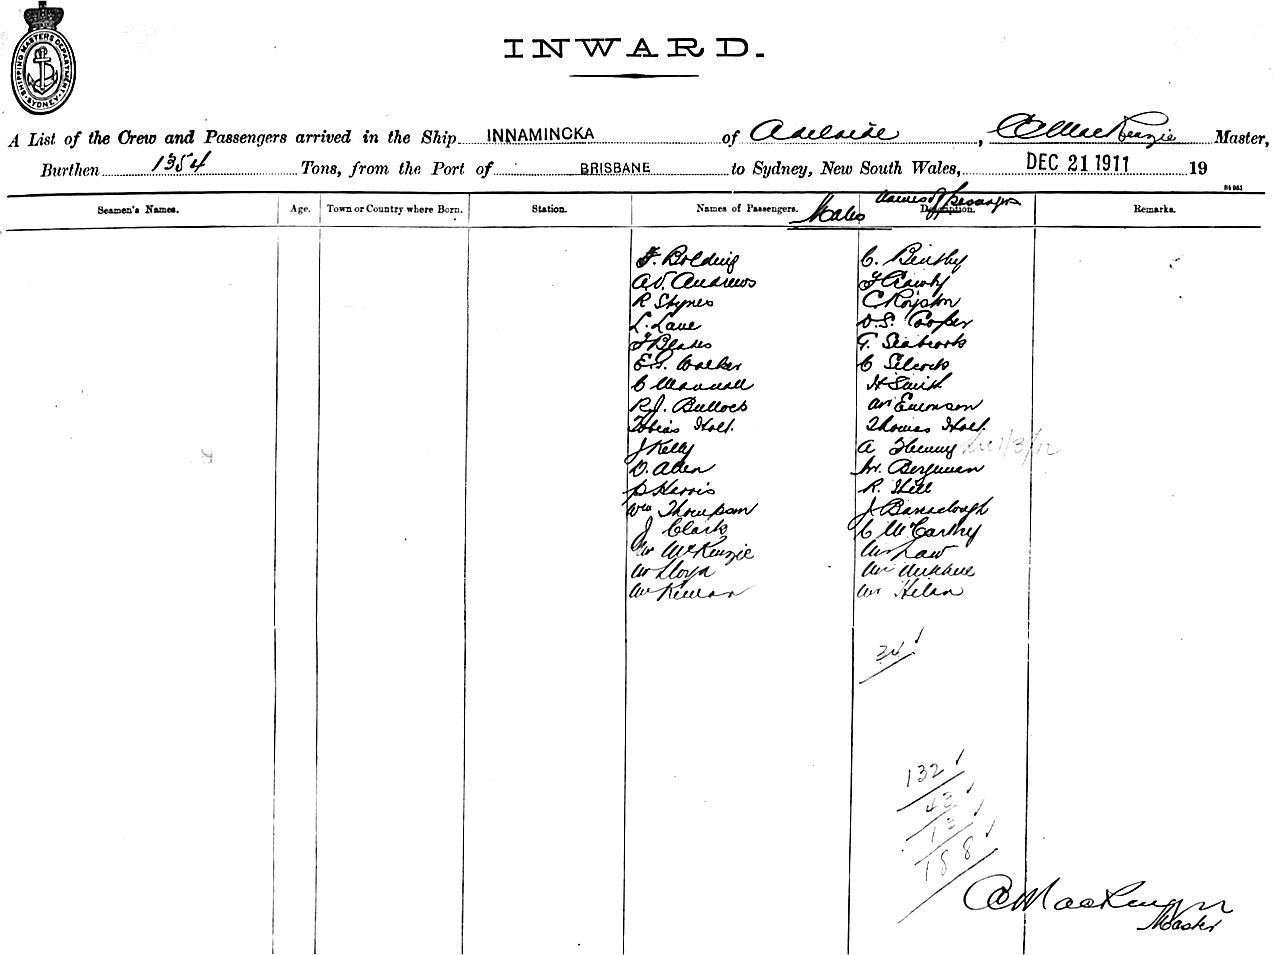 SHIPPING MASTERS DEPARTMENT. SYDNEY.
INWARD.
A List of the Crew and Passengers arrived in the Ship INNAMINCKA of Adelaide, C MacKenzie Master,
Burthen 1354 Tons, from the Port of BRISBANE to Sydney, New South Wales, DEC 21 1911 19
Seamen's Names. Age. Town or Country where Born. Station. Names of Passengers. Males Names of Passengers Description. Remarks.
F. Bolding C. Bensby
A.V. Andrews
R Stynes C. Royston
L. Lane D.S. Cooper
F Blades T. Seabrook
E.G. Walker C Silcock
C H Smith
R.J. Bullock Mr Evenson
Tobias Holt. Thomas Holt.
J Kelly A 1/3/12
D. Allen Mr. Bergman
P Harris R. Hill
Wm Thompson J Barraclough
J Clark C McCarthy
Mr McKenzie Mr Law
Mr Lloyd Mr
Mr Mr
34
132
43
13
188
C MacKenzie
Master